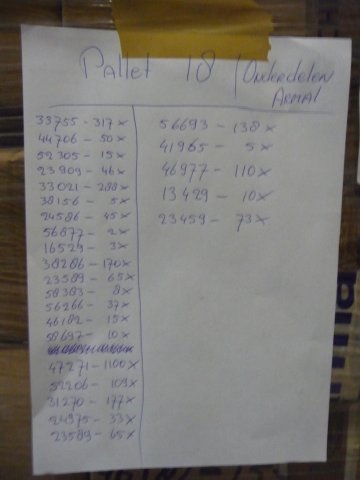 Pallet 18 / Onderdelen
Armal
33755 - 317x
44706 - 50x
52305 - 15x
23909 - 46x
33021 - 288x
38156 - 5x
24586 - 45x
56877 - 2x
16529 - 3x
38286 - 170x
23589 - 65x
58383 - 8x
56266 - 37x
46182 - 15x
58697 - 10x
47271 - 1100x
52206 - 109x
31270 - 177x
24975 - 33x
23589 - 65x
56693 - 138x
41965 - 5x
46977 - 110x
13429 - 10x
23459 - 73x